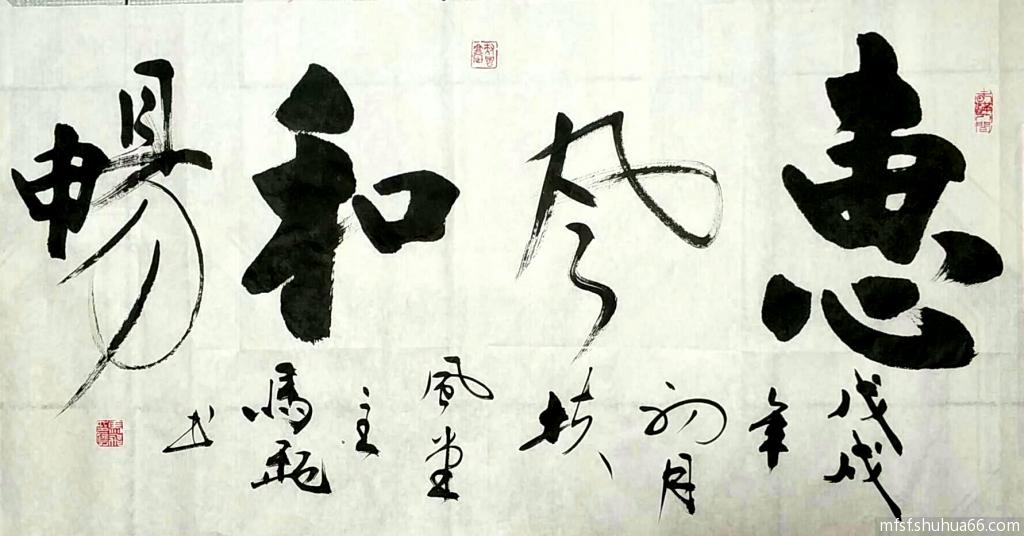 惠风和暢
戊戌
年
初月
扶
風堂
主
书
mfsfshuhua66.com